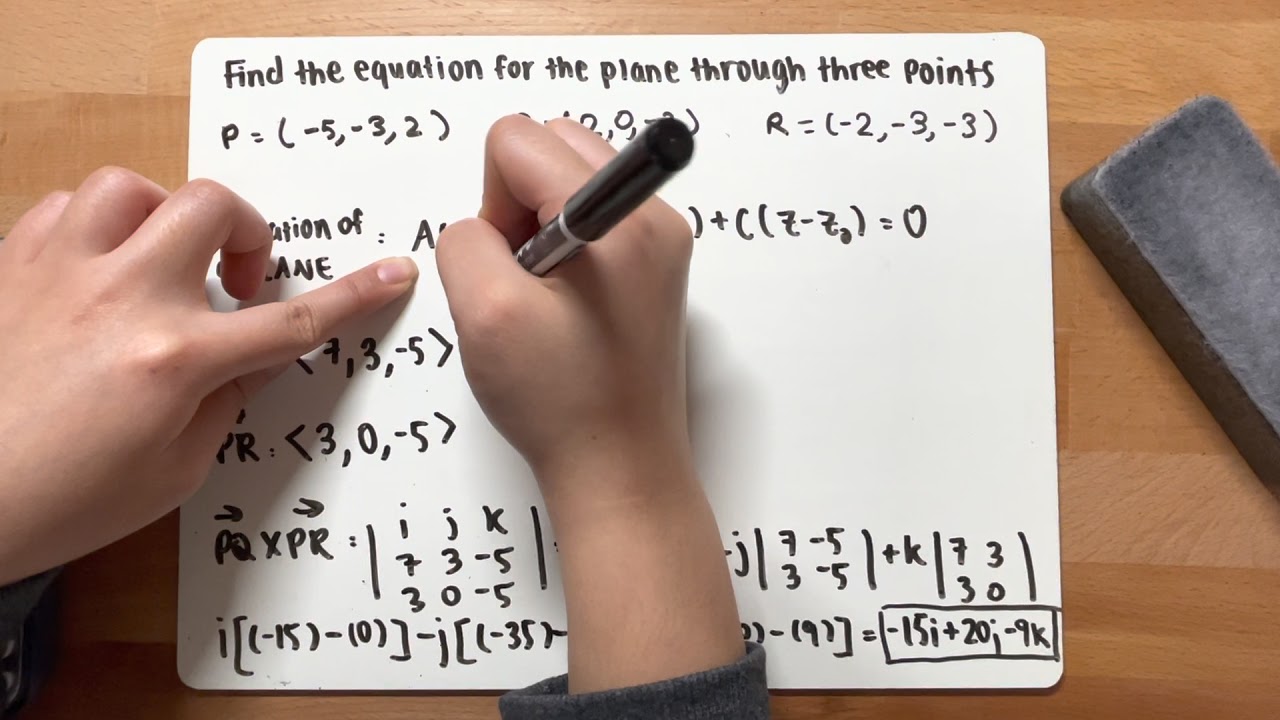 Find the equation for the plane through three points
P = (-5,-3,2) 0, R = (-2,-3,-3)
of : A ) + C(z-z₀) = 0
7, 3, -5>
PR: <3, 0, -5>
PQ x PR : | i j k | -j | 7 -5 | + k | 7 3 |
7 3 -5 3 -5 3 0
3 0 -5
i[(-15) - (0)] - j[(-35) - ) - (9)] = -15i + 20j - 9k